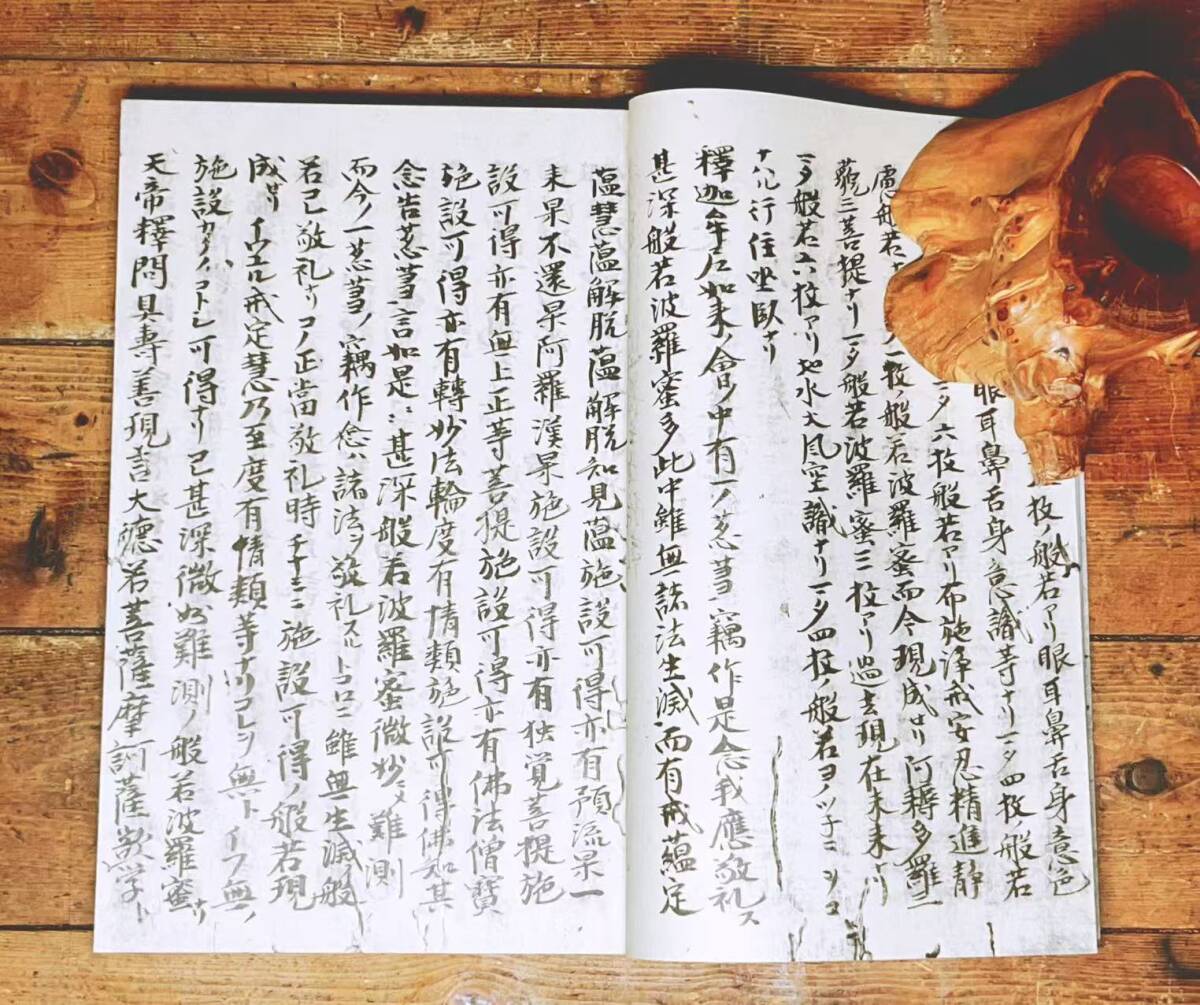 枚ノ般若アリ眼耳鼻舌身意色
眼耳鼻舌身意識等ナリ一タ四枚般若
一タ六枚般若アリ布施浄戒安忍精進静
慮般若 一枚ノ般若波羅蜜而今現成セリ阿耨多羅三
藐三菩提ナリ一タ般若波羅蜜三枚アリ過去現在未来ナリ
一タ般若六枚アリ地水火風空識ナリ一タ四枚般若ヨノツ子ニシコ
ナハル行住坐臥ナリ
釋迦牟尼如来ノ會ノ中有一ノ苾蒭竊作是念我應敬礼ス
甚深般若波羅蜜多此中雖無諸法生滅而有戒蘊定
蘊慧蘊解脱蘊解脱知見蘊施設可得亦有預流果一
来果不還果阿羅漢果施設可得亦有独覚菩提施
設可得亦有無上正等菩提施設可得亦有佛法僧寶
施設可得亦有轉妙法輪度有情類施設可得佛知其
念告苾蒭言如是〻甚深般若波羅蜜微妙〻難測
而今ノ一苾蒭ノ竊作念ハ諸法ヲ敬礼スルトコロニ雖無生滅ノ般
若已敬礼ナリコノ正當敬礼時チナミニ施設可得ノ般若現
成セリイワユル戒定慧乃至度有情類等ナリコレヲ無トイフ無ノ
施設カクノコトシ可得ナリ已甚深微妙難測ノ般若波羅蜜ナリ
天帝釋問具壽善現言大徳若菩薩摩訶薩欲学ト